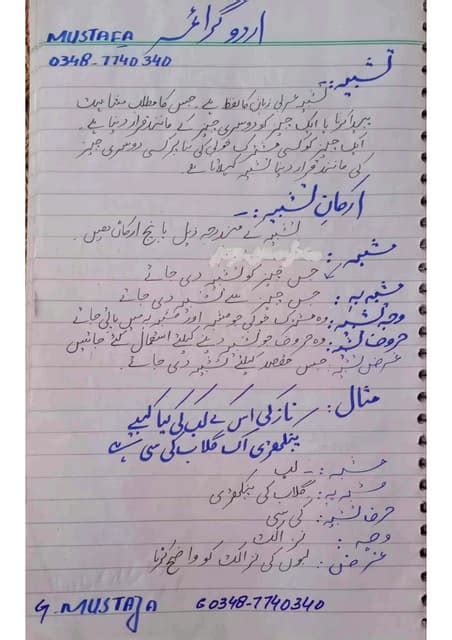 اردو گرائمر
MUSTAFA
0348-7740340
تشبیہ:-
تشبیہ عربی زبان کا لفظ ہے۔ جس کا مطلب مشابہت
پیدا کرنا یا ایک چیز کو دوسری چیز کے مانند قرار دینا ہے۔
ایک چیز کو کسی مشترک خوبی کی بنا پر کسی دوسری چیز
کی مانند قرار دینا تشبیہ کہلاتا ہے۔
ارکانِ تشبیہ:-
تشبیہ کے مندرجہ ذیل پانچ ارکان ہیں۔
مشبہ: جس چیز کو تشبیہ دی جائے
مشبہ بہ: جس چیز سے تشبیہ دی جائے
وجہ تشبیہ: وہ مشترک خوبی جو مشبہ اور مشبہ بہ میں پائی جائے
حروف تشبیہ: وہ حروف جو تشبیہ دینے کیلئے استعمال کئے جائیں
غرض تشبیہ: جس مقصد کیلئے تشبیہ دی جائے۔
مثال: نازکی اس کے لب کی کیا کہیے
پنکھڑی اک گلاب کی سی ہے
مشبہ:- لب
مشبہ بہ: گلاب کی پنکھڑی
حرف تشبیہ: کی سی
وجہ: نزاکت
غرض: لبوں کی نزاکت کو واضح کرنا
G. MUSTAFA 0348-7740340